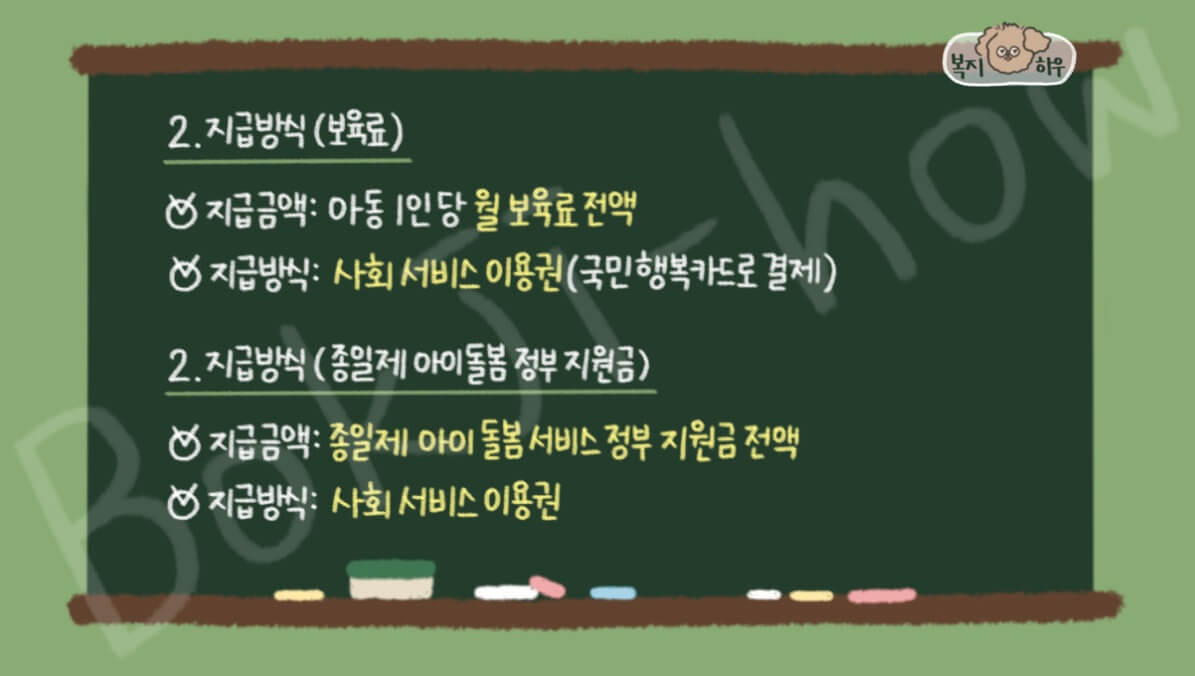 복지 하우
2. 지급방식 (보육료)
지급금액: 아동 1인당 월 보육료 전액
지급방식: 사회 서비스 이용권(국민행복카드로 결제)
2. 지급방식 (종일제 아이돌봄 정부 지원금)
지급금액: 종일제 아이 돌봄 서비스 정부 지원금 전액
지급방식: 사회 서비스 이용권
Bokji-how